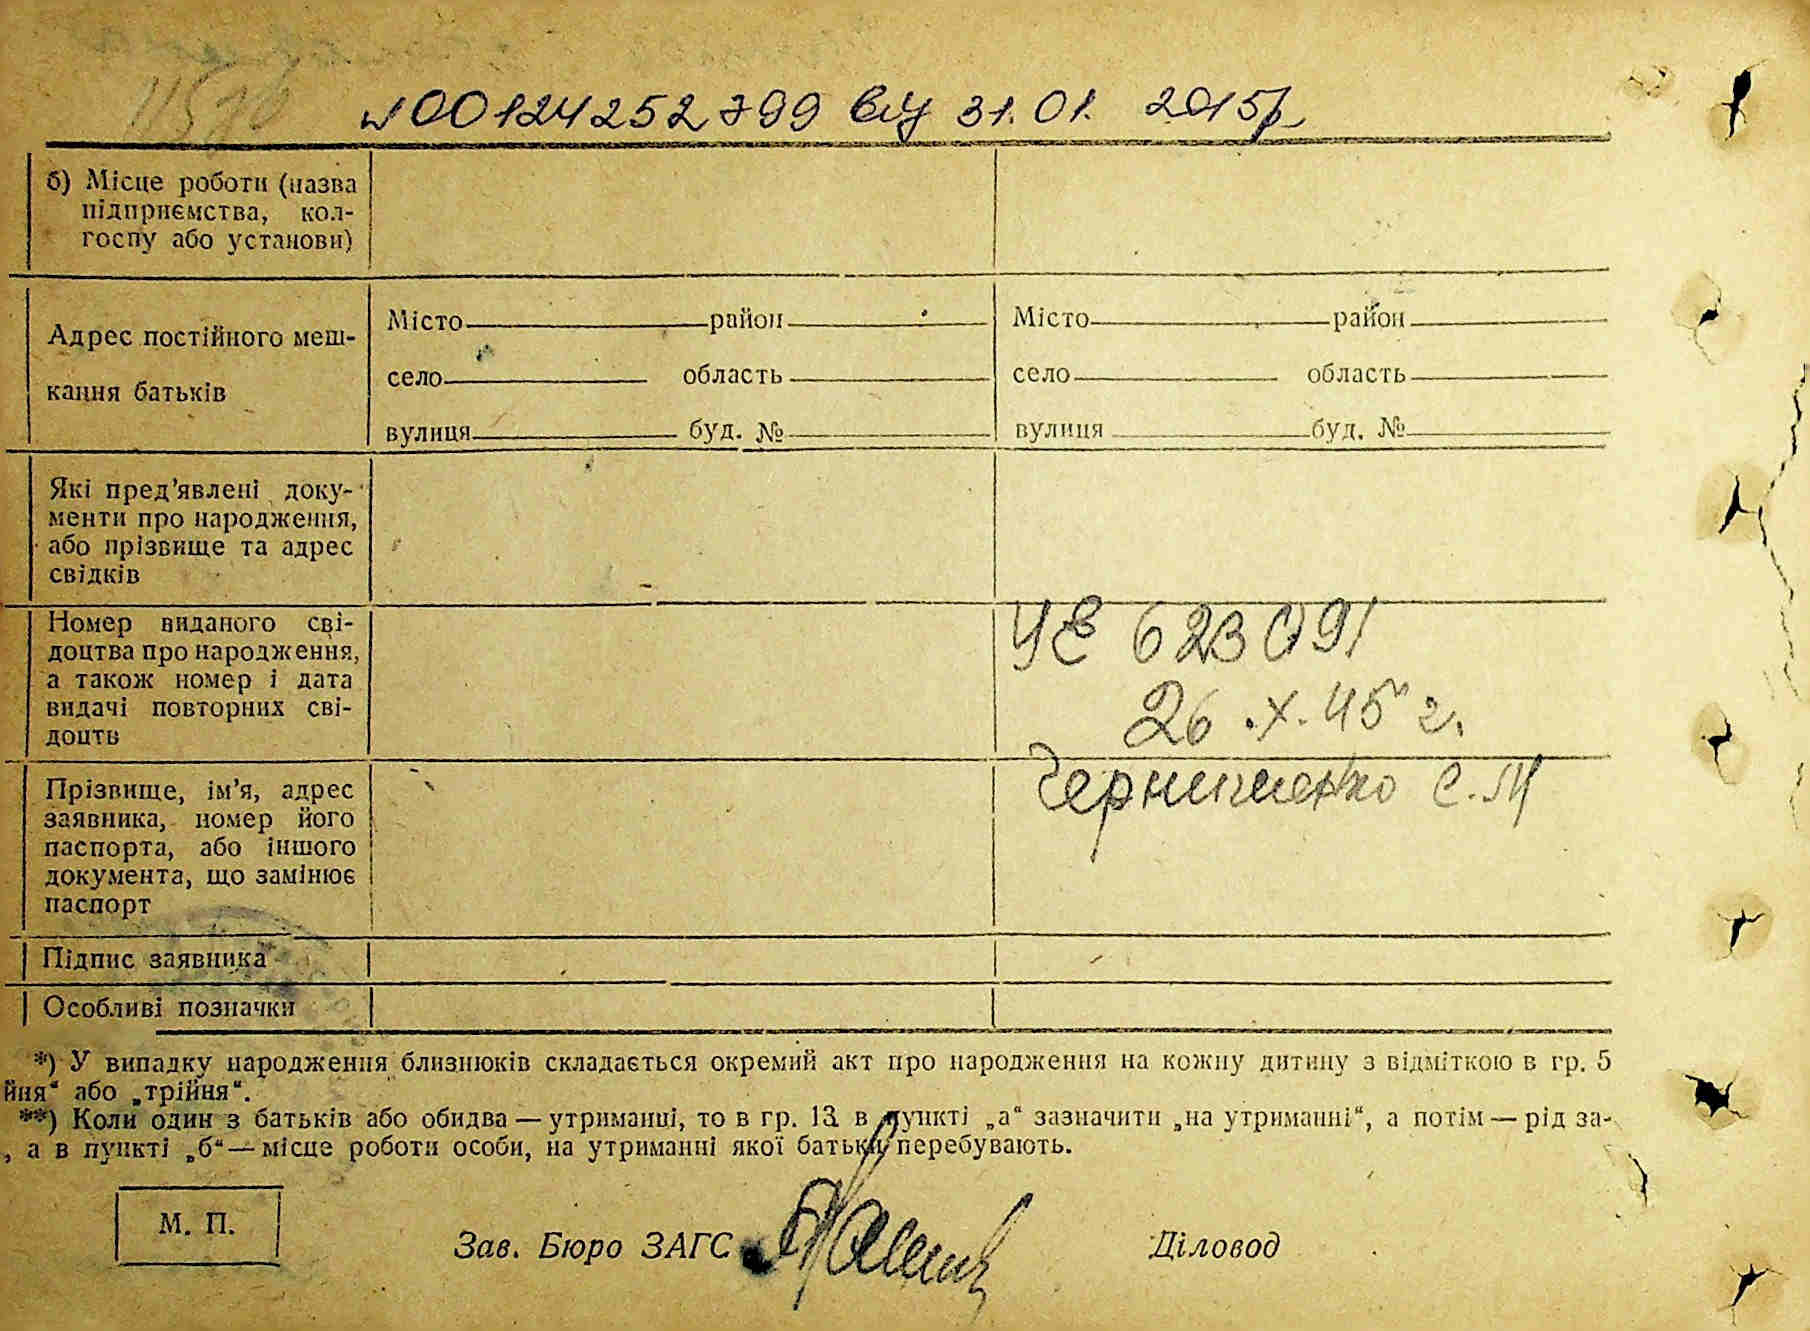 N00124252799 від 31.01. 2015р
б) Місце роботи (назва
підприємства, кол-
госпу або установи)
Адрес постійного меш-
кання батьків
Місто район Місто район
село область село область
вулиця буд. № вулиця буд. №
Які пред’явлені доку-
менти про народження,
або прізвище та адрес
свідків
Номер виданого сві-
доцтва про народження,
а також номер і дата
видачі повторних сві-
доцтв
УЕ 623091
26.X.45 г.
Прізвище, ім’я, адрес
заявника, номер його
паспорта, або іншого
документа, що замінює
паспорт
С.М
Підпис заявника
Особливі позначки
*) У випадку народження близнюків складається окремий акт про народження на кожну дитину з відміткою в гр. 5
йня“ або „трійня“.
**) Коли один з батьків або обидва — утриманці, то в гр. 13 в пункті „а“ зазначити „на утриманні“, а потім — рід за-
, а в пункті „б“ — місце роботи особи, на утриманні якої батьки перебувають.
М. П.
Зав. Бюро ЗАГС Діловод